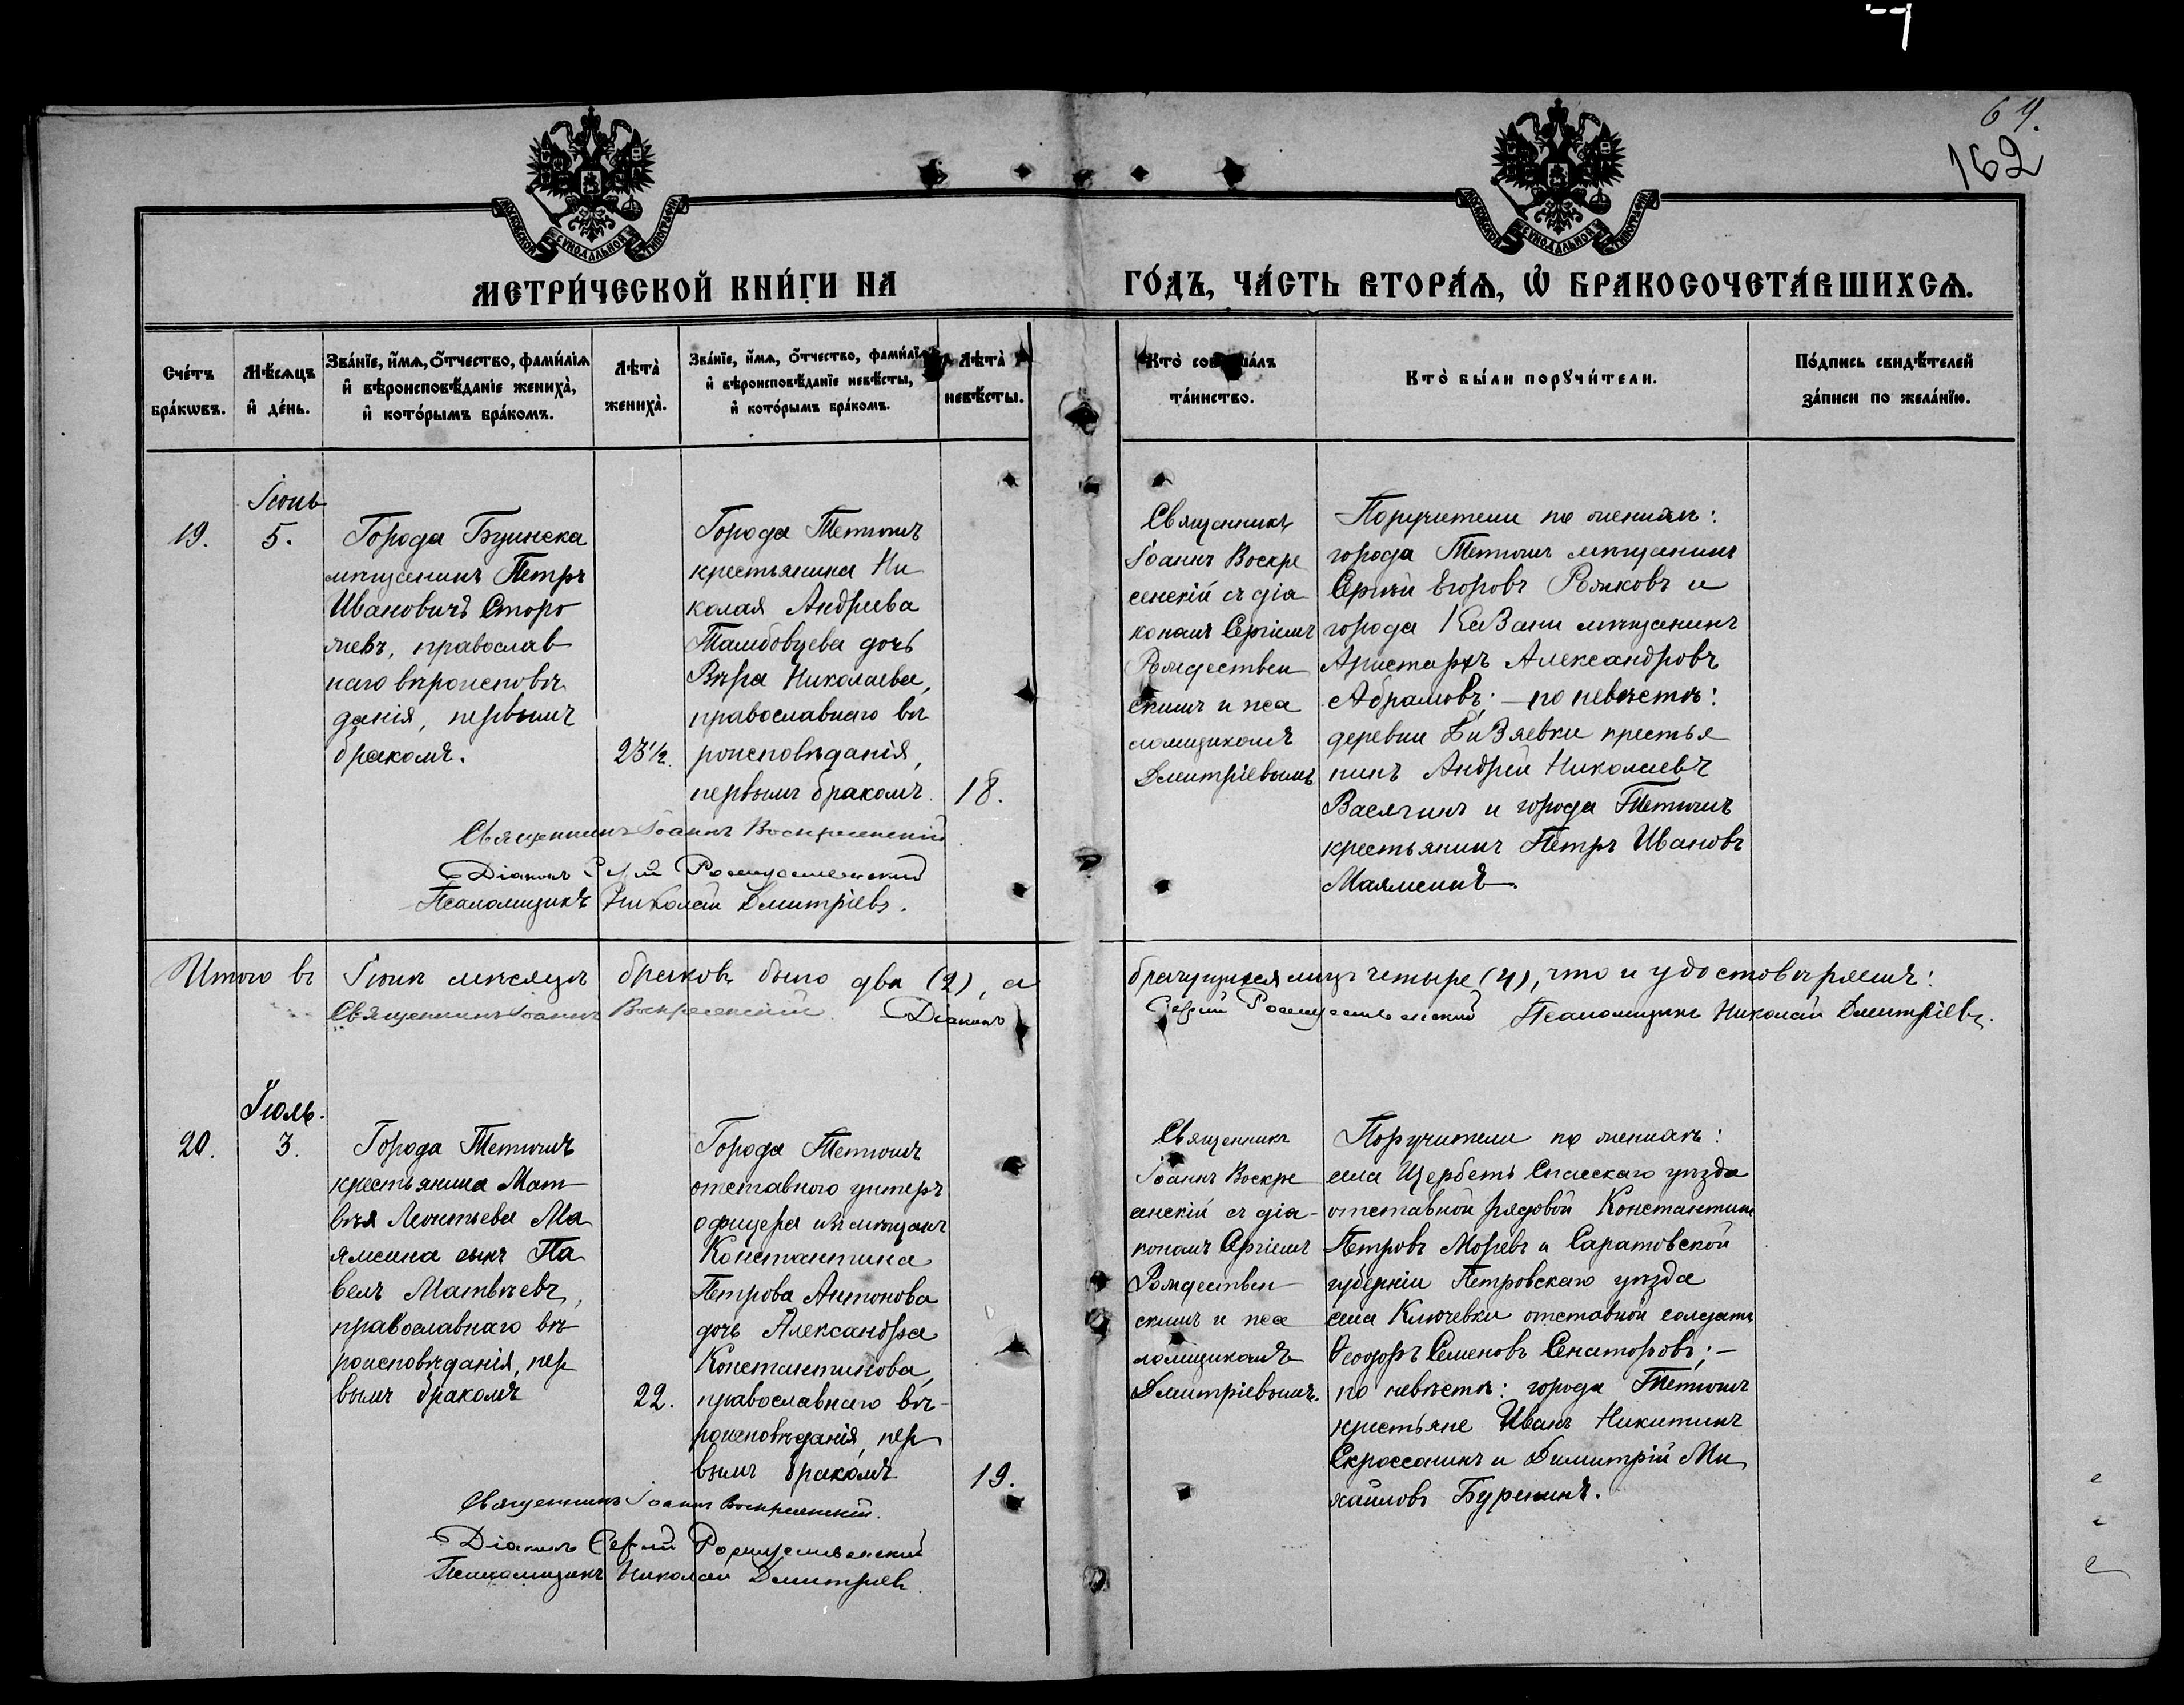 64.
162
МОСКОВСКОЙ СѴНОДАЛЬНОЙ ТИПОГРАФІИ
МОСКОВСКОЙ СѴНОДАЛЬНОЙ ТИПОГРАФІИ
МЕТРИ́ЧЕСКОЙ КНИ́ГИ НА ГО́ДЪ, ЧА́СТЬ ВТОРА́Ѧ, Ѡ҆ БРАКОСОЧЕТА́ВШИХСѦ.
Сче́тъ
бра́кѡвъ.
Мѣ́сѧцъ
и҆ де́нь.
Зва́нїе, и҆́мѧ, ѻ҆́тчество, фами́лїѧ
и҆ вѣроисповѣ́данїе жениха̀,
и҆ кото́рымъ бра́комъ.
Лѣта̀
жениха̀.
Зва́нїе, и҆́мѧ, ѻ҆́тчество, фами́лїѧ
и҆ вѣроисповѣ́данїе невѣ́сты,
и҆ кото́рымъ бра́комъ.
Лѣта̀
невѣ́сты.
Кто̀ соверша́лъ
та́инство.
Кто̀ бы́ли порꙋчи́тели.
По́дпись свидѣ́телей
за́писи по жела́нїю.
19.
Іюнь
5.
Города Буинска
мѣщанинъ Петръ
Ивановичъ Сторо
жевъ, православ
наго вѣроисповѣ
данія, первымъ
бракомъ.
23½.
Города Тетюшъ
крестьянина Ни
колая Андреева
Тамбовцева дочь
Вѣра Николаева,
православнаго вѣ
роисповѣданія,
первымъ бракомъ.
18.
Священникъ
Іоаннъ Воскре
сенскій съ діа
кономъ Сергіемъ
Рождествен
скимъ и пса
ломщикомъ
Дмитріевымъ
Поручители по женихѣ:
города Тетюшъ мѣщанинъ
Сергѣй Егоровъ Рожковъ и
города Казани мѣщанинъ
Аристархъ Александровъ
Абрамовъ; — по невѣстѣ:
деревни Бизяевки крестья
нинъ Андрей Николаевъ
Васягинъ и города Тетюшъ
крестьянинъ Петръ Ивановъ
Маямсинъ.
Священникъ Іоаннъ Воскресенскій
Діаконъ Сергій Рождественский
Псаломщикъ Николай Дмитріевъ.
Итого въ Іюнѣ мѣсяцѣ браковъ было два (2), а брачущихся лицъ четыре (4), что и удостовѣряемъ:
Священникъ Іоаннъ Воскресенскій. Діаконъ Сергій Рождественский Псаломщикъ Николай Дмитріевъ.
20.
Іюль.
3.
Города Тетюшъ
крестьянина Мат
вѣя Леонтьева Ма
ямсина сынъ Па
велъ Матвѣевъ,
православнаго вѣ
роисповѣданія, пер
вымъ бракомъ
22.
Города Тетюшъ
отставного унтеръ
офицера изъ мѣщанъ
Константина
Петрова Антонова
дочь Александра
Константинова,
православнаго вѣ-
роисповѣданія, пер
вымъ бракомъ
19.
Священникъ
Іоаннъ Воскре
сенскій съ діа-
кономъ Сергіемъ
Рождествен
скимъ и пса
ломщикомъ
Дмитріевымъ.
Поручители по женихѣ:
села Щербеть Спасскаго уѣзда
отставной рядовой Константинъ
Петровъ Моревъ и Саратовской
губерніи Петровскаго уѣзда
села Ключевки отставной солдатъ
Ѳеодоръ Семеновъ Сенаторовъ; —
по невѣстѣ: города Тетюшъ
крестьяне Иванъ Никитинъ
и Димитрій Ми
хайловъ Буренинъ.
Священникъ Іоаннъ Воскресенскій.
Діаконъ Сергій Рождественский
Псаломщикъ Николай Дмитріевъ.